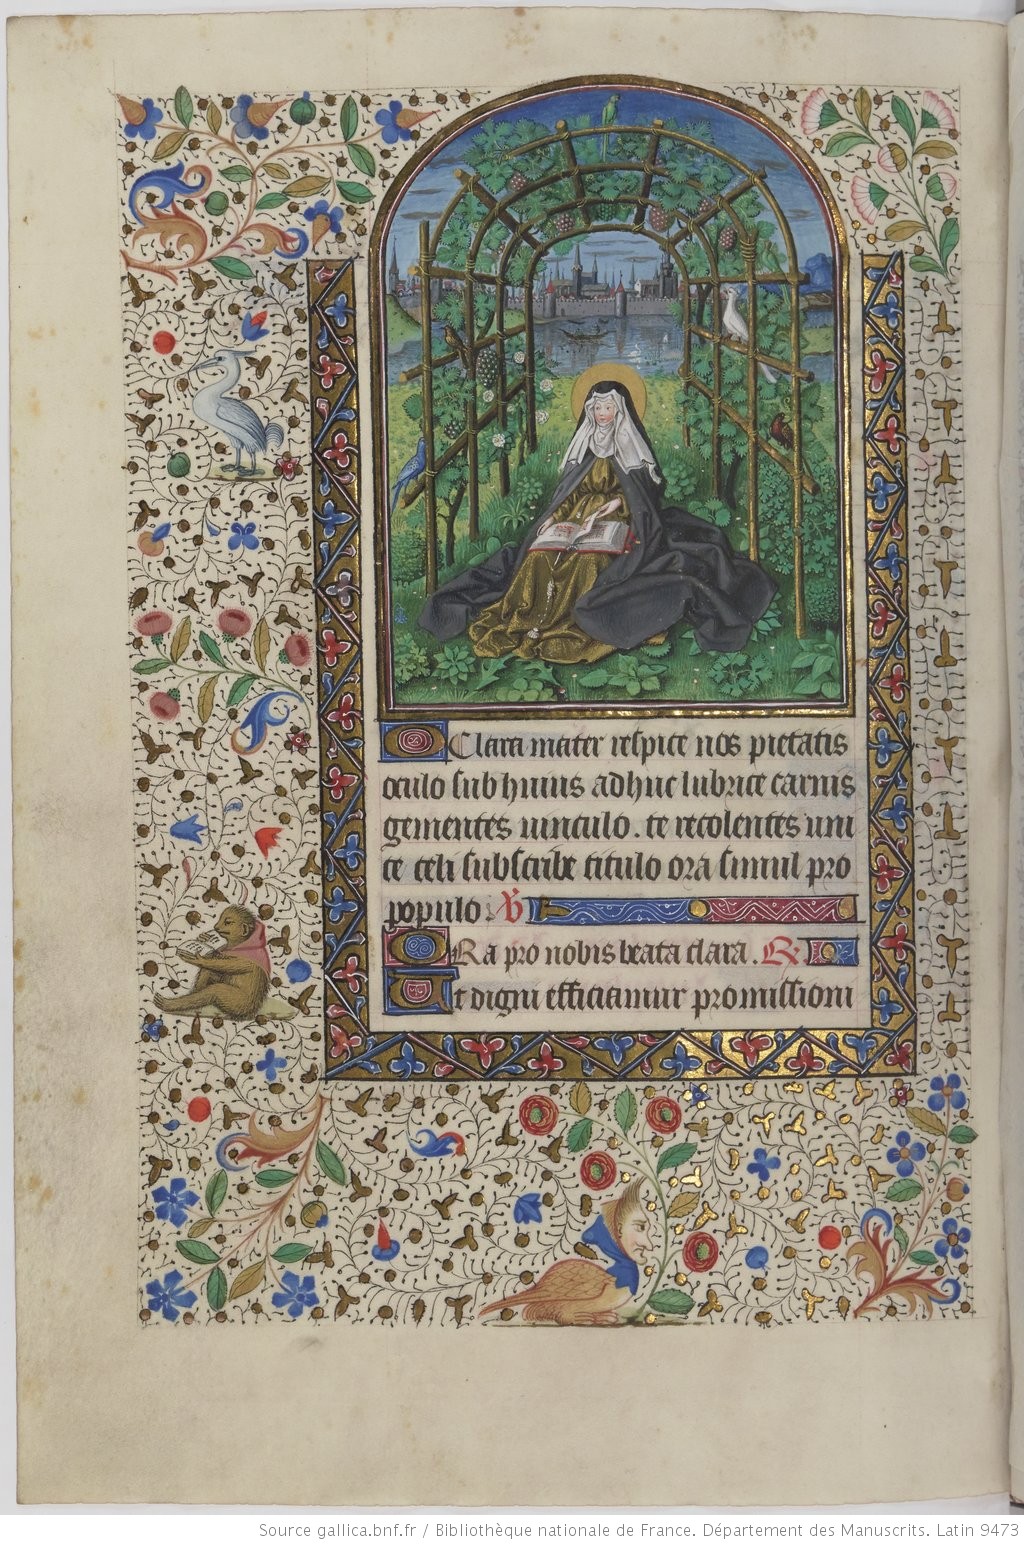 O Clara mater respice nos pietatis
oculo sub huius adhuc lubrice carnis
gementes uinculo. te recolentes uni
te celi subscribe titulo ora simul pro
populo. V
ORa pro nobis beata clara. R.
Vt digni efficiamur promissioni
Source gallica.bnf.fr / Bibliothèque nationale de France. Département des Manuscrits. Latin 9473